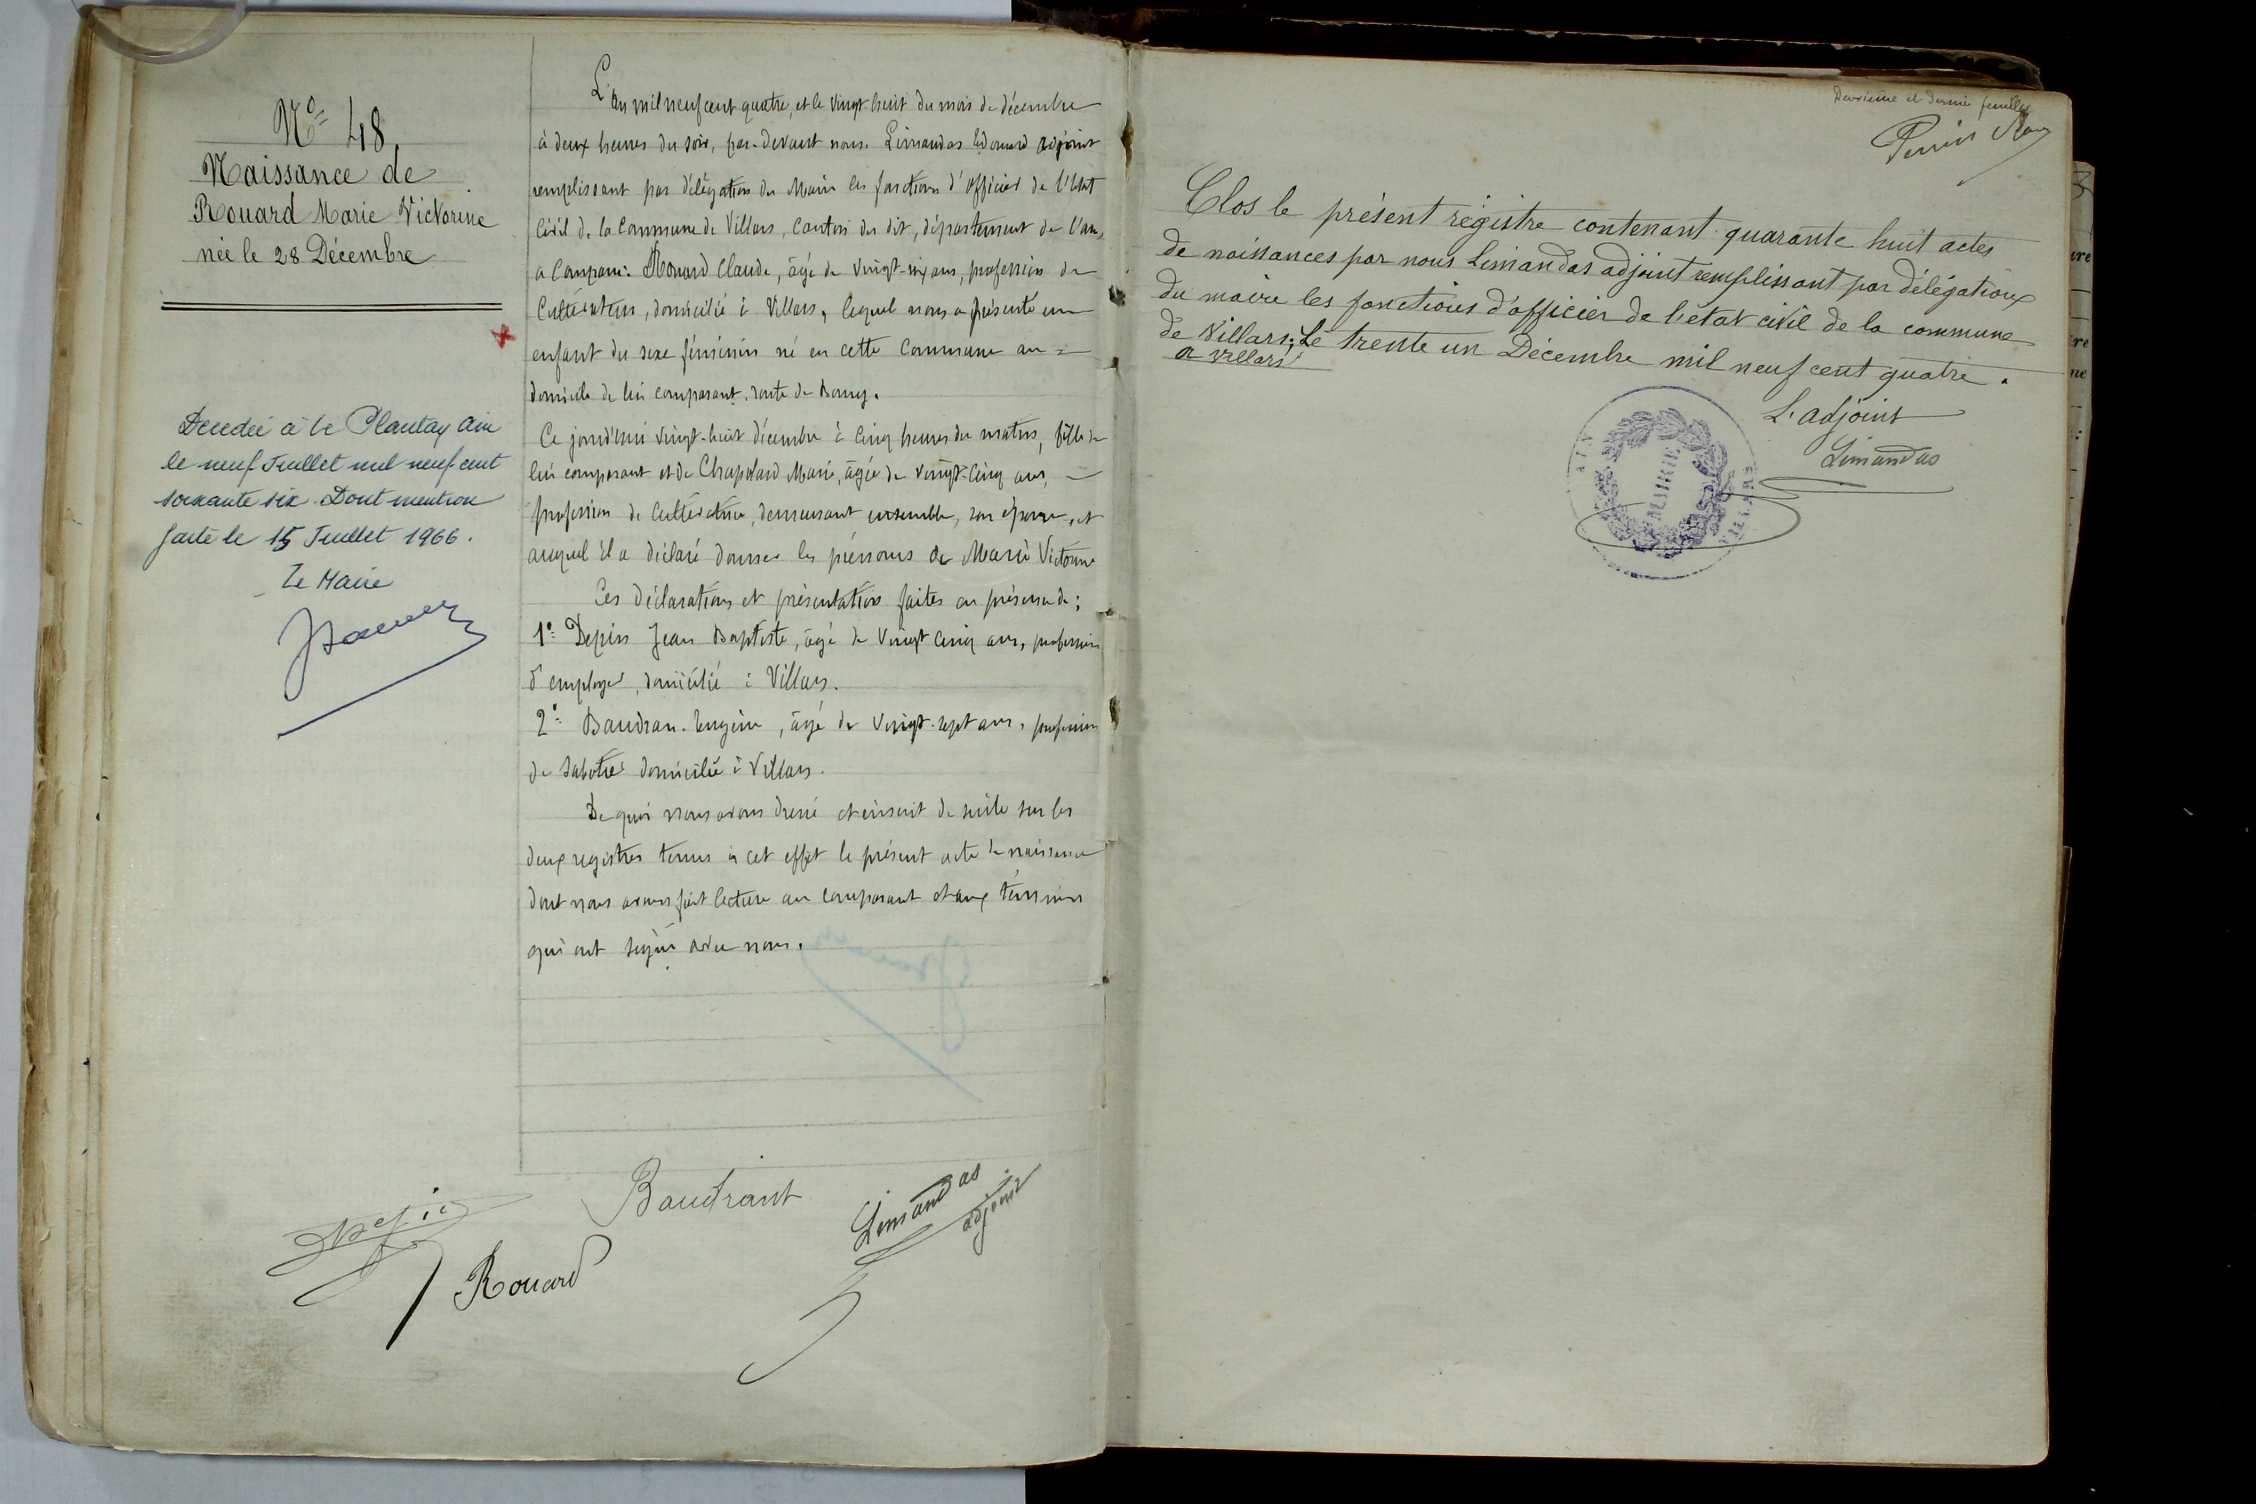 Nº 48
Naissance de
Rouard Marie Victorine
née le 28 Décembre
Décédée à Le Plantay Ain
le neuf Juillet mil neuf cent
soixante six. Dont mention
faite le 15 Juillet 1966.
Le Maire
L'an mil neuf cent quatre, et le vingt-huit du mois de décembre
à deux heures du soir, par-devant nous Limandas Edouard adjoint
remplissant par délégation du Maire les fonctions d'officier de l'Etat
Civil de la Commune de Villars, Canton du dit, département de l'Ain,
a comparu: Rouard Claude, âgé de vingt-six ans, profession de
Cultivateur, domicilié à Villars, lequel nous a présenté un
enfant du sexe féminin né en cette Commune au =
domicile de lui comparant, route de Bourg.
Ce jourd'hui vingt-huit décembre à cinq heures du matin, fille de
lui comparant et de Chapoland Marie, âgée de vingt-cinq ans,
profession de Cultivatrice, demeurant ensemble, son épouse, et
auquel il a déclaré donner les prénoms de Marie Victorine
Ces déclarations et présentation faites en présence de:
1º Depin Jean Baptiste, âgé de vingt cinq ans, profession
d'employé, domicilié à Villars.
2º Baudran Eugène, âgé de vingt-sept ans, profession
de sabotier domicilié à Villars.
De quoi nous avons dressé et inscrit de suite sur les
deux registres tenus à cet effet le présent acte de naissance
dont nous avons fait lecture au comparant et aux témoins
qui ont signé avec nous.
Depin
Baudrant
Limandas
adjoint
Rouard
Deuxième et dernier feuillet
Clos le présent régistre contenant quarante huit actes
de naissances par nous Limandas adjoint remplissant par délégation
du maire les fonctions d'officier de l'état civil de la commune
de Villars; Le trente un Décembre mil neuf cent quatre.
a Villars
L'adjoint
Limandas
MAIRIE
AIN
VILLARS